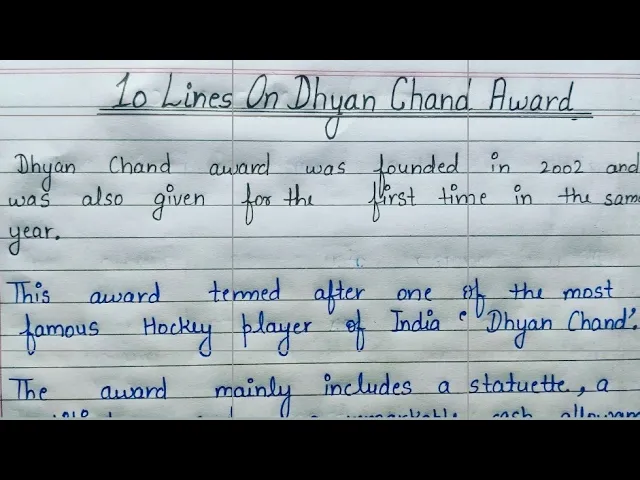 10 Lines On Dhyan Chand Award
Dhyan Chand award was founded in 2002 and
was also given for the first time in the same
year.
This award termed after one of the most
famous Hockey player of India ‘Dhyan Chand’.
The award mainly includes a statuette, a
cash